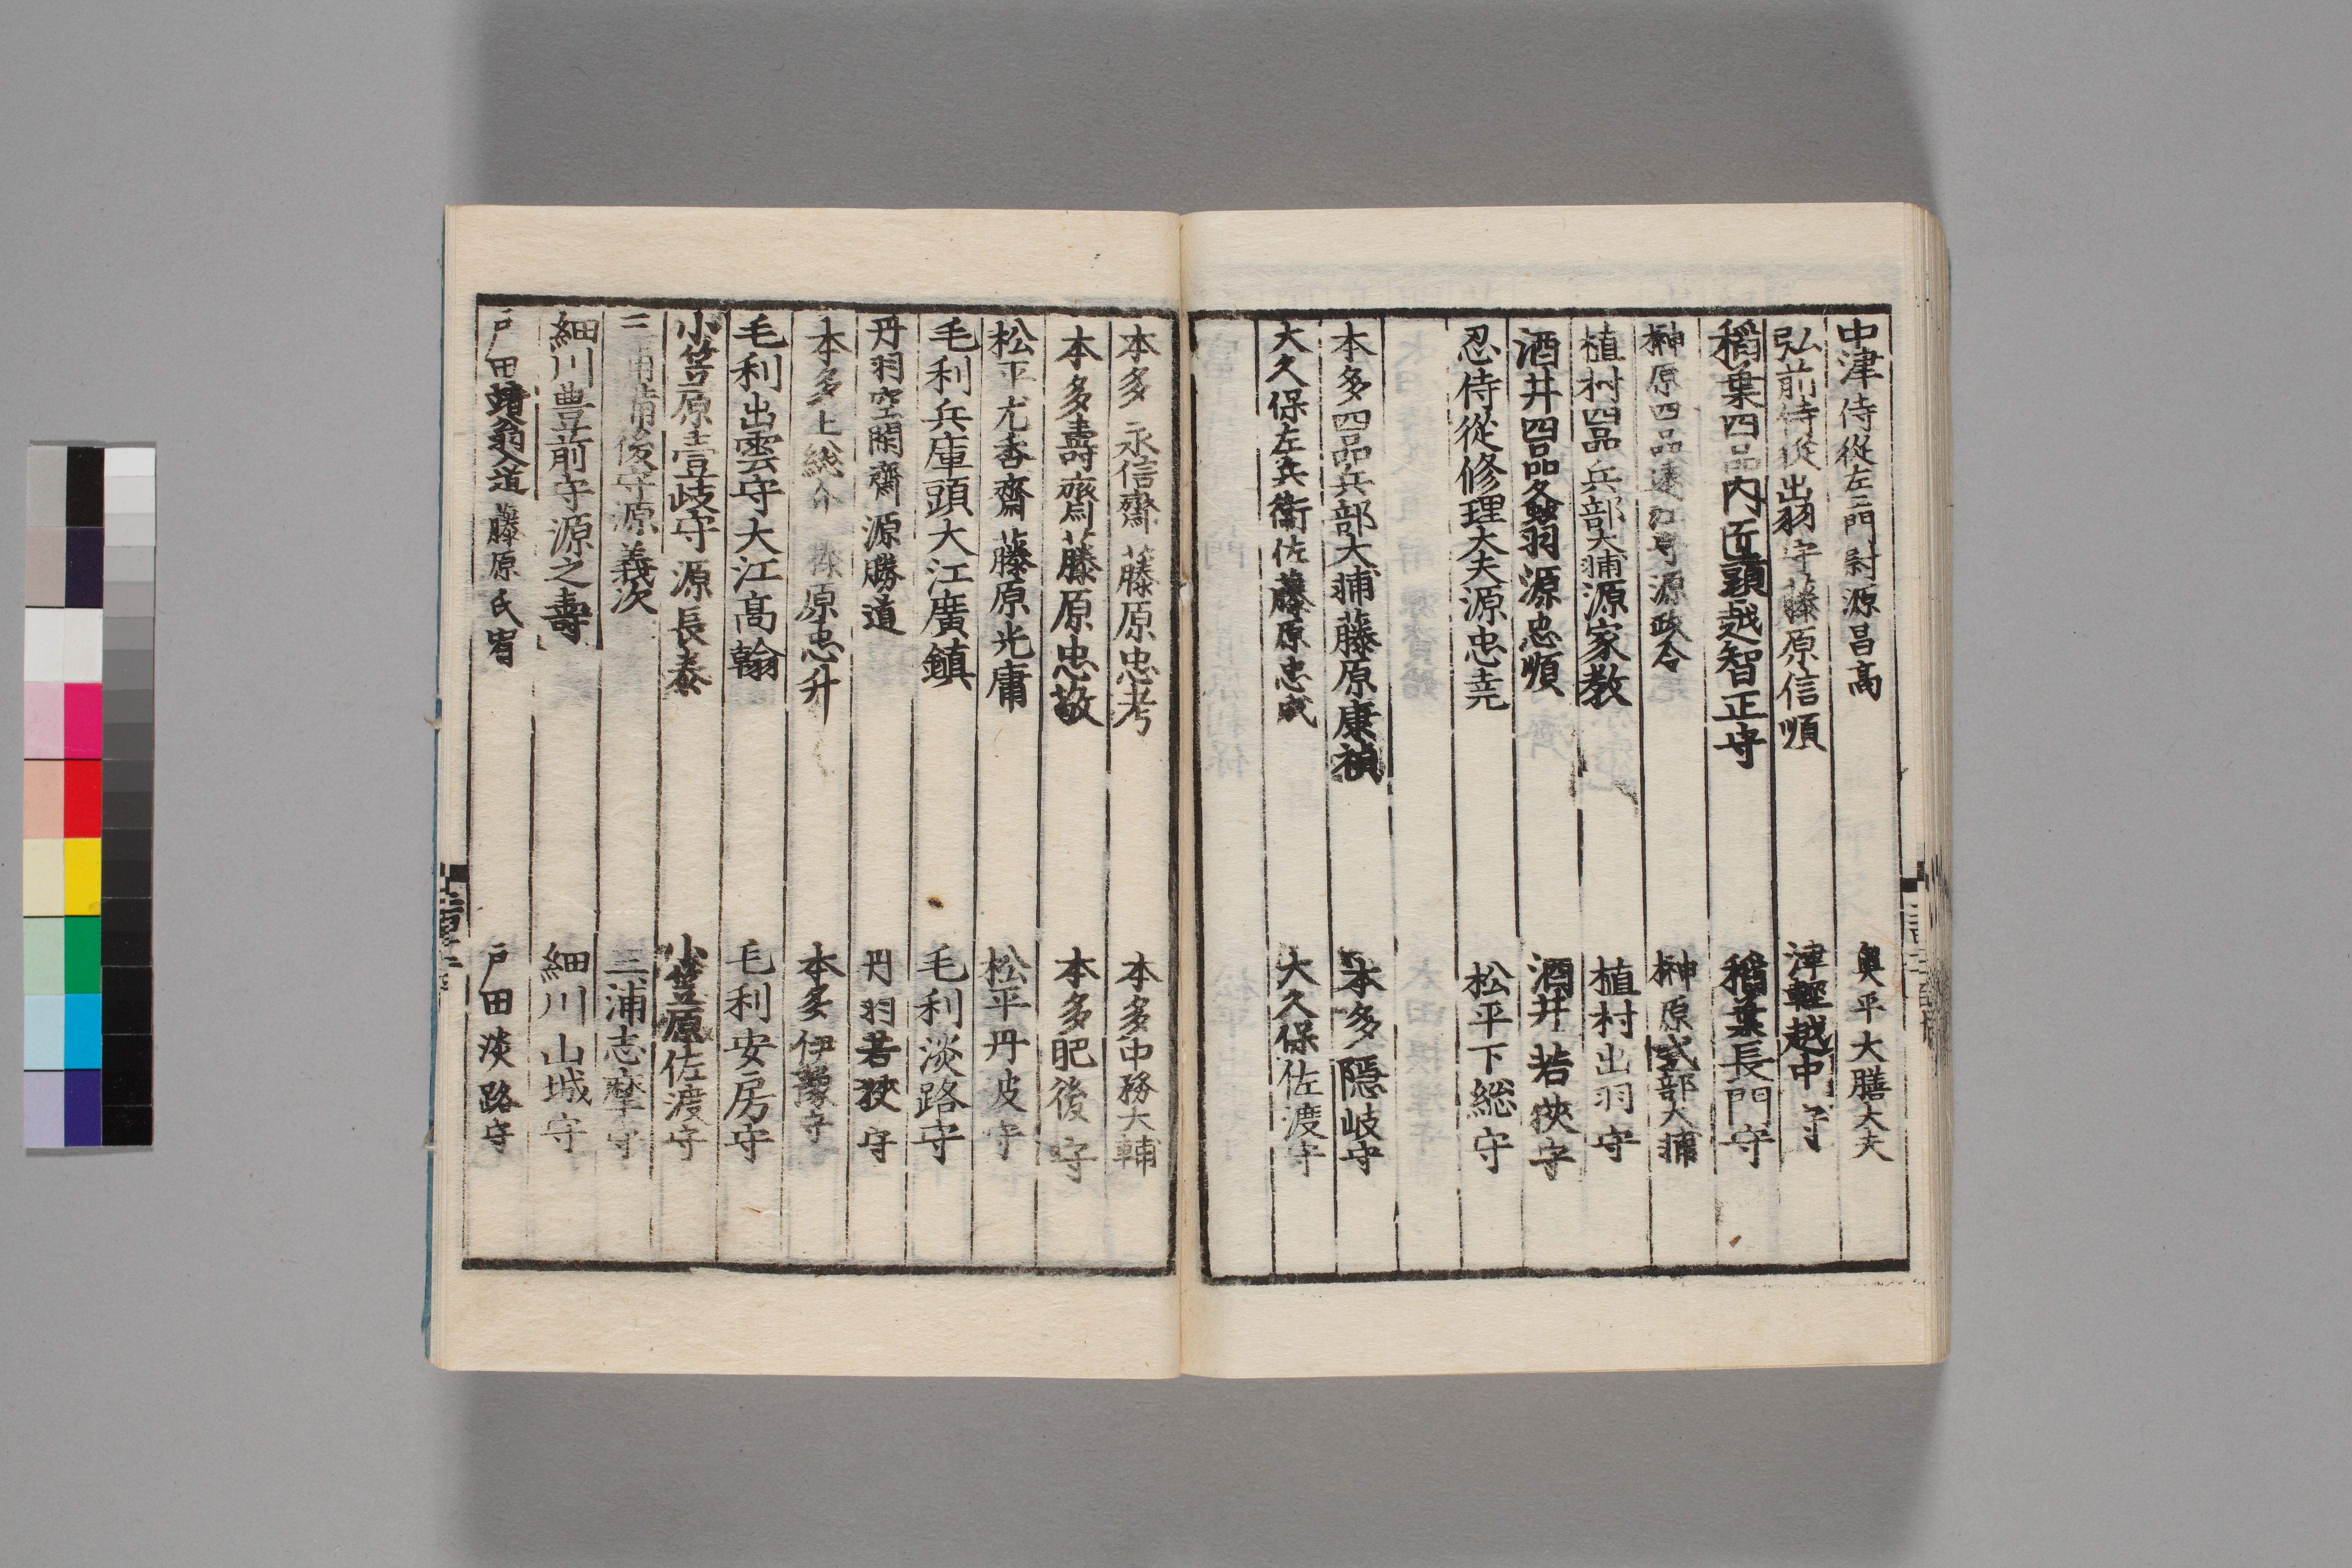 中津侍從左エ門尉源昌髙 奥平大膳大夫
弘前侍從出羽守藤原信順 津輕越中守
稲葉四品内匠頭越智正守 稲葉長門守
榊原四品遠江守源政令 榊原式部大輔
植村四品兵部大輔源家教 植村出羽守
酒井四品 源忠順 酒井若狹守
忍侍從修理大夫源忠尭 松平下総守
本多四品兵部大輔藤原康禎 本多隠岐守
大久保左兵衛佐藤原忠成 大久保佐渡守
本多永信齋藤原忠考 本多中務大輔
本多壽齋藤原忠敬 本多肥後守
松平尤香齋藤原光庸 松平丹波守
毛利兵庫頭大江廣鎮 毛利淡路守
丹羽空閑齋源勝道 丹羽若狹守
本多上総介藤原忠升 本多伊豫守
毛利出雲守大江髙翰 毛利安房守
小笠原壹岐守源長泰 小笠原佐渡守
三浦備後守源義次 三浦志摩守
細川豊前守源之壽 細川山城守
戸田 入道藤原氏宥 戸田淡路守